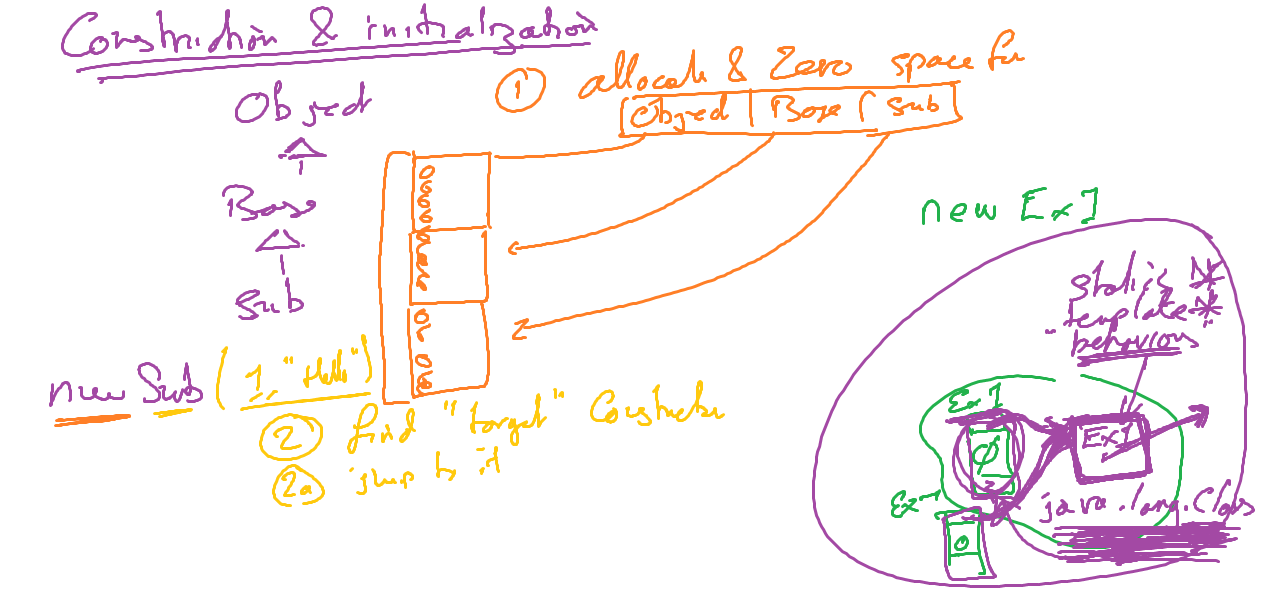 Construction & initialization
① allocate & Zero space for
Object | Base | Sub
Object
Base
Sub
00000
0000
00 00
new Sub (1, "Hello")
② find "target" Constructor
2a jump to it
new Ex1
statics *
template *
"behaviors"
Ex1
Ex1
0
Ex1
0
java.lang.Class